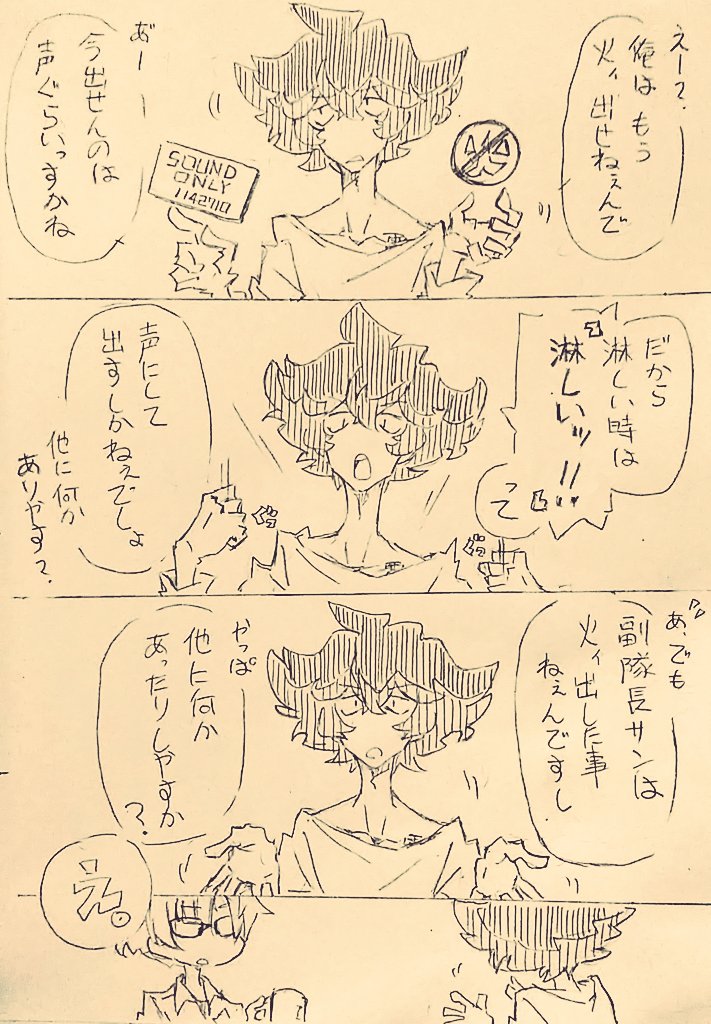 えー?
俺はもう
火ィ出せねぇんで
SOUND
ONLY
あ゛ー
今出せんのは
声ぐらいっすかね
だから
淋しい時は
淋しいッ!!
って
声にして
出すしかねぇでしょ
他に何か
ありやす?
あ、でも
副隊長サンは
火ィ出した事
ねぇんですし
やっぱ
他に何か
あったりしやすか
?
え。